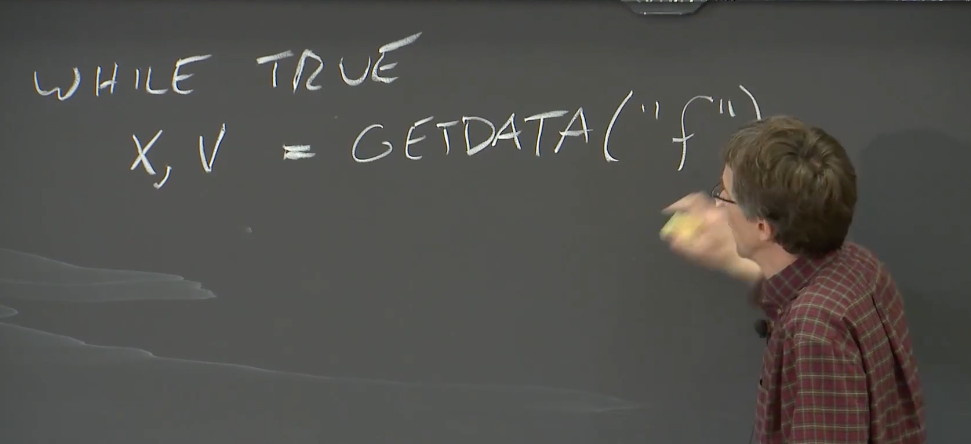 WHILE TRUE
X, V = GETDATA("f")